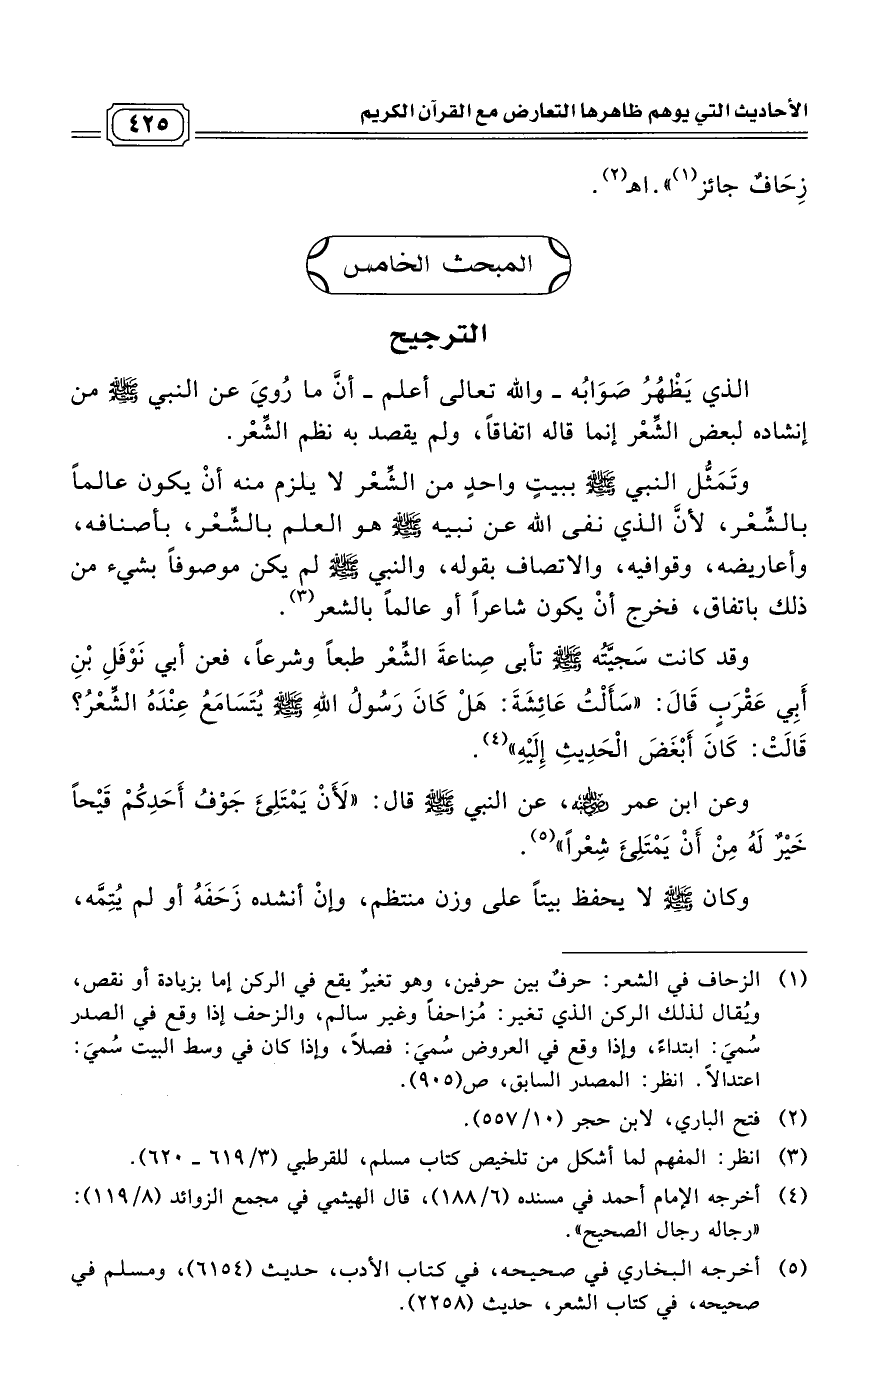 الأحاديث التي يوهم ظاهرها التعارض مع القرآن الكريم
٤٢٥
زِحَافٌ جائز(١)».اهـ(٢).
المبحث الخامس
الترجيح
الذي يَظْهُرُ صَوَابُه ـ والله تعالى أعلم ـ أنَّ ما رُويَ عن النبي ﷺ من
إنشاده لبعض الشِّعْر إنما قاله اتفاقاً، ولم يقصد به نظم الشِّعْر.
وتَمَثُّل النبي ﷺ ببيتٍ واحدٍ من الشِّعْر لا يلزم منه أنْ يكون عالماً
بالشِّعْر، لأنَّ الذي نفى الله عن نبيه ﷺ هو العلم بالشِّعْر، بأصنافه،
وأعاريضه، وقوافيه، والاتصاف بقوله، والنبي ﷺ لم يكن موصوفاً بشيء من
ذلك باتفاق، فخرج أنْ يكون شاعراً أو عالماً بالشعر(٣).
وقد كانت سَجيَّتُه ﷺ تأبى صِناعةَ الشِّعْر طبعاً وشرعاً، فعن أبي نَوْفَلِ بْنِ
أَبِي عَقْرَبٍ قَالَ: «سَأَلْتُ عَائِشَةَ: هَلْ كَانَ رَسُولُ اللهِ ﷺ يُتَسَامَعُ عِنْدَهُ الشِّعْرُ؟
قَالَتْ: كَانَ أَبْغَضَ الْحَدِيثِ إِلَيْهِ»(٤).
وعن ابن عمر رضي الله عنه، عن النبي ﷺ قال: «لَأَنْ يَمْتَلِئَ جَوْفُ أَحَدِكُمْ قَيْحاً
خَيْرٌ لَهُ مِنْ أَنْ يَمْتَلِئَ شِعْراً»(٥).
وكان ﷺ لا يحفظ بيتاً على وزن منتظم، وإنْ أنشده زَحَفَهُ أو لم يُتِمَّه،
(١) الزحاف في الشعر: حرفٌ بين حرفين، وهو تغيرٌ يقع في الركن إما بزيادة أو نقص،
ويُقال لذلك الركن الذي تغير: مُزاحفاً وغير سالم، والزحف إذا وقع في الصدر
سُميَ: ابتداءً، وإذا وقع في العروض سُميَ: فصلاً، وإذا كان في وسط البيت سُميَ:
اعتدالاً. انظر: المصدر السابق، ص(٩٠٥).
(٢) فتح الباري، لابن حجر (١٠/٥٥٧).
(٣) انظر: المفهم لما أشكل من تلخيص كتاب مسلم، للقرطبي (٣/٦١٩ ـ ٦٢٠).
(٤) أخرجه الإمام أحمد في مسنده (٦/١٨٨)، قال الهيثمي في مجمع الزوائد (٨/١١٩):
«رجاله رجال الصحيح».
(٥) أخرجه البخاري في صحيحه، في كتاب الأدب، حديث (٦١٥٤)، ومسلم في
صحيحه، في كتاب الشعر، حديث (٢٢٥٨).